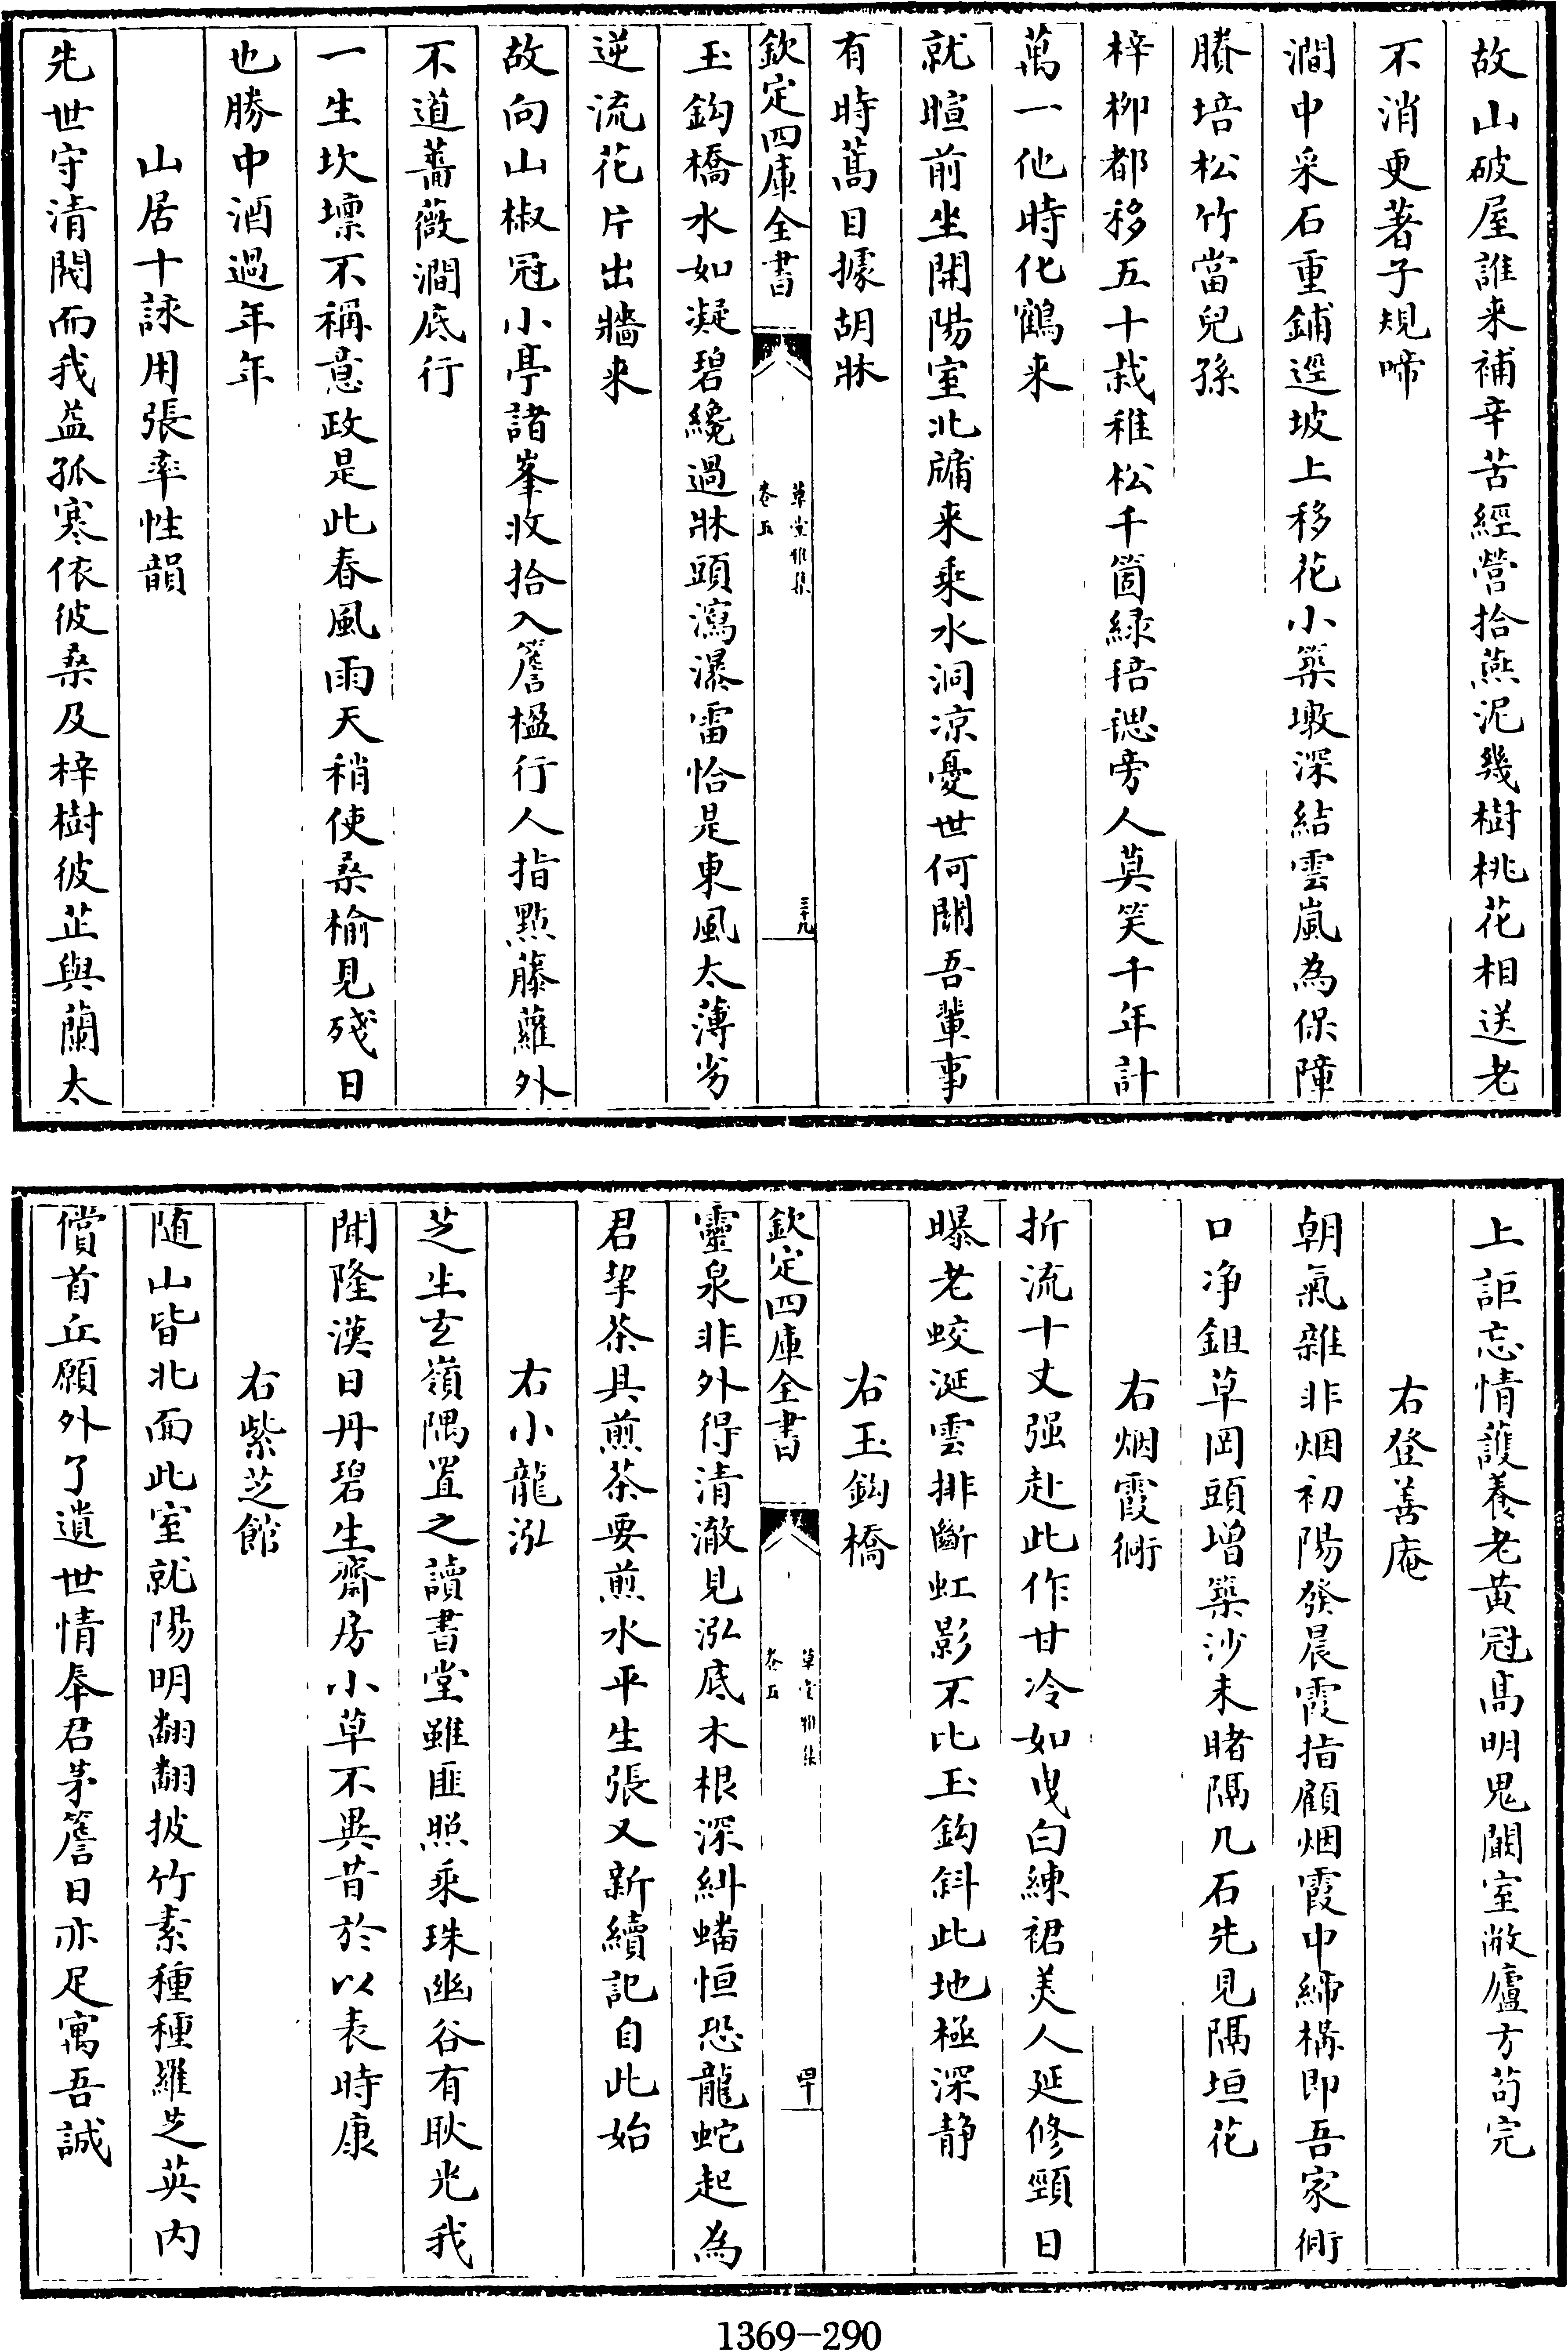 故山破屋誰来補辛苦經營拾燕泥幾樹桃花相送老
不消更著子規啼
澗中采石重鋪逕坡上移花小築墩深結雲嵐為保障
賸培松竹當兒孫
梓栁都移五十栽稚松千箇緑毰毸旁人莫笑千年計
萬一他時化鶴来
就暄前坐開陽室北牖来乘水洞凉憂世何闗吾輩事
有時蒿目據胡牀
欽定四庫全書
草堂雅集
卷五
三十九
玉鈎橋水如凝碧纔過牀頭瀉瀑雷恰是東風太薄劣
逆流花片出牆来
故向山椒冠小亭諸峯收拾入簷楹行人指㸃藤蘿外
不道薔薇澗底行
一生坎壈不稱意政是此春風雨天稍使桑榆見殘日
也勝中酒過年年
山居十詠用張率性韻
先世守清閥而我益孤寒依彼桑及梓樹彼芷與蘭太
上詎忘情護養老黄冠髙明鬼闞室敝廬方茍完
右登善庵
朝氣雜非烟初陽發晨霞指顧烟霞中締構即吾家衕
口净鉏草岡頭增築沙未睹隔几石先見隔垣花
右烟霞衕
折流十丈强赴此作甘冷如曳白練裙美人延修頸日
曝老蛟涎雲排斷虹影不比玉鈎斜此地極深静
右玉鈎橋
欽定四庫全書
草堂雅集
卷五
四十
靈泉非外得清澈見泓底木根深糾蟠恒恐龍蛇起為
君挈茶具煎茶要煎水平生張又新續記自此始
右小龍泓
芝生玄嶺隅置之讀書堂雖匪照乘珠幽谷有耿光我
聞隆漢日丹碧生齋房小草不異昔於以表時康
右紫芝館
随山皆北面此室就陽明翻翻披竹素種種羅芝英内
償首丘願外了遺世情奉君茅簷日亦足寓吾誠
1369-290